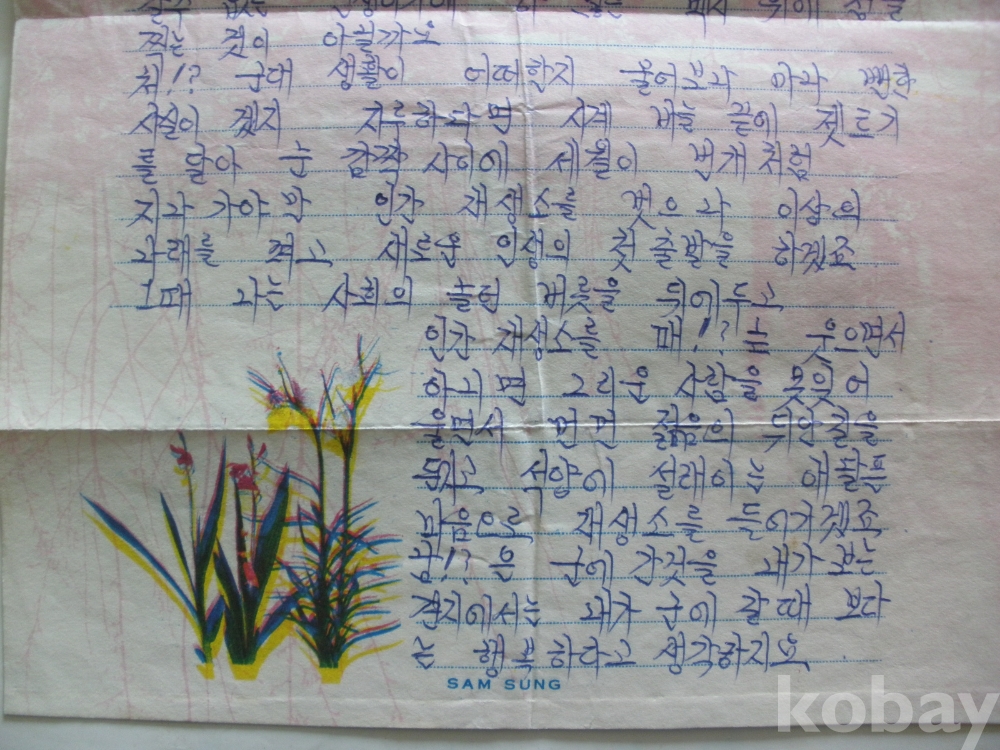 찍는 것이 아닐까요
처!? 군대 생활이 어떠한지 물어보나 마나 뻔한
사실이 겠지 지루하다면 시계 바늘 끝에 젯트기
를 달아 눈 감짝 사이에 세월이 번개 처럼
지나 가야 만 인간 재생소를 벗으나 이상의
나래를 펴고 새로운 인생의 첫 출발을 하겠죠
그때 나는 사회의 놀던 버릇을 뒤에 두고
인간 재생소를 때!? 는 웃으면서
아니면 그리운 사람을 못잊어
울면서 먼먼 젊음의 뒤안길을
돌고 석양에 설래이는 애달픈
마음으로 재생소를 들어가겠죠
남!? 은 군에 간것을 내가 보는
견지에서는 내가 군에 갈때 보다
는 행복하다고 생각하지요
SAM SUNG
kobay